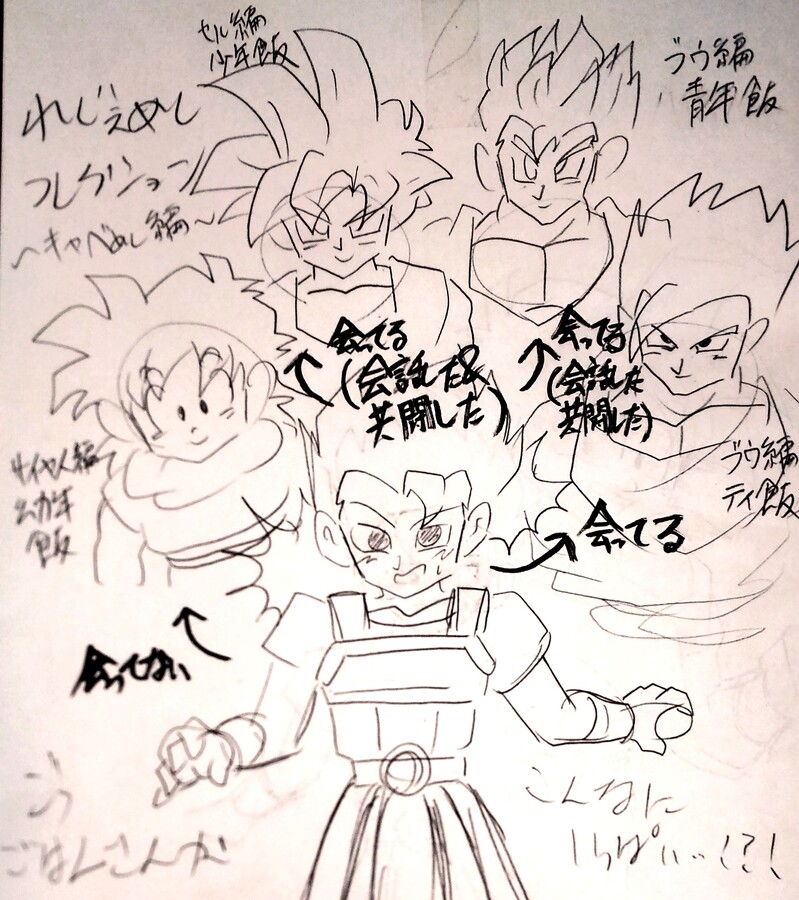 セル編
少年飯
ブウ編
青年飯
れじぇめし
コレクション
〜キャベめし編〜
会ってる
(会話した&
共闘した)
会ってる
(会話した
共闘した)
サイヤ人編
幼年
飯
ブウ編
ティ飯
会ってる
会ってない
ごはんさんが
こんなに
いっぱいっ!?!